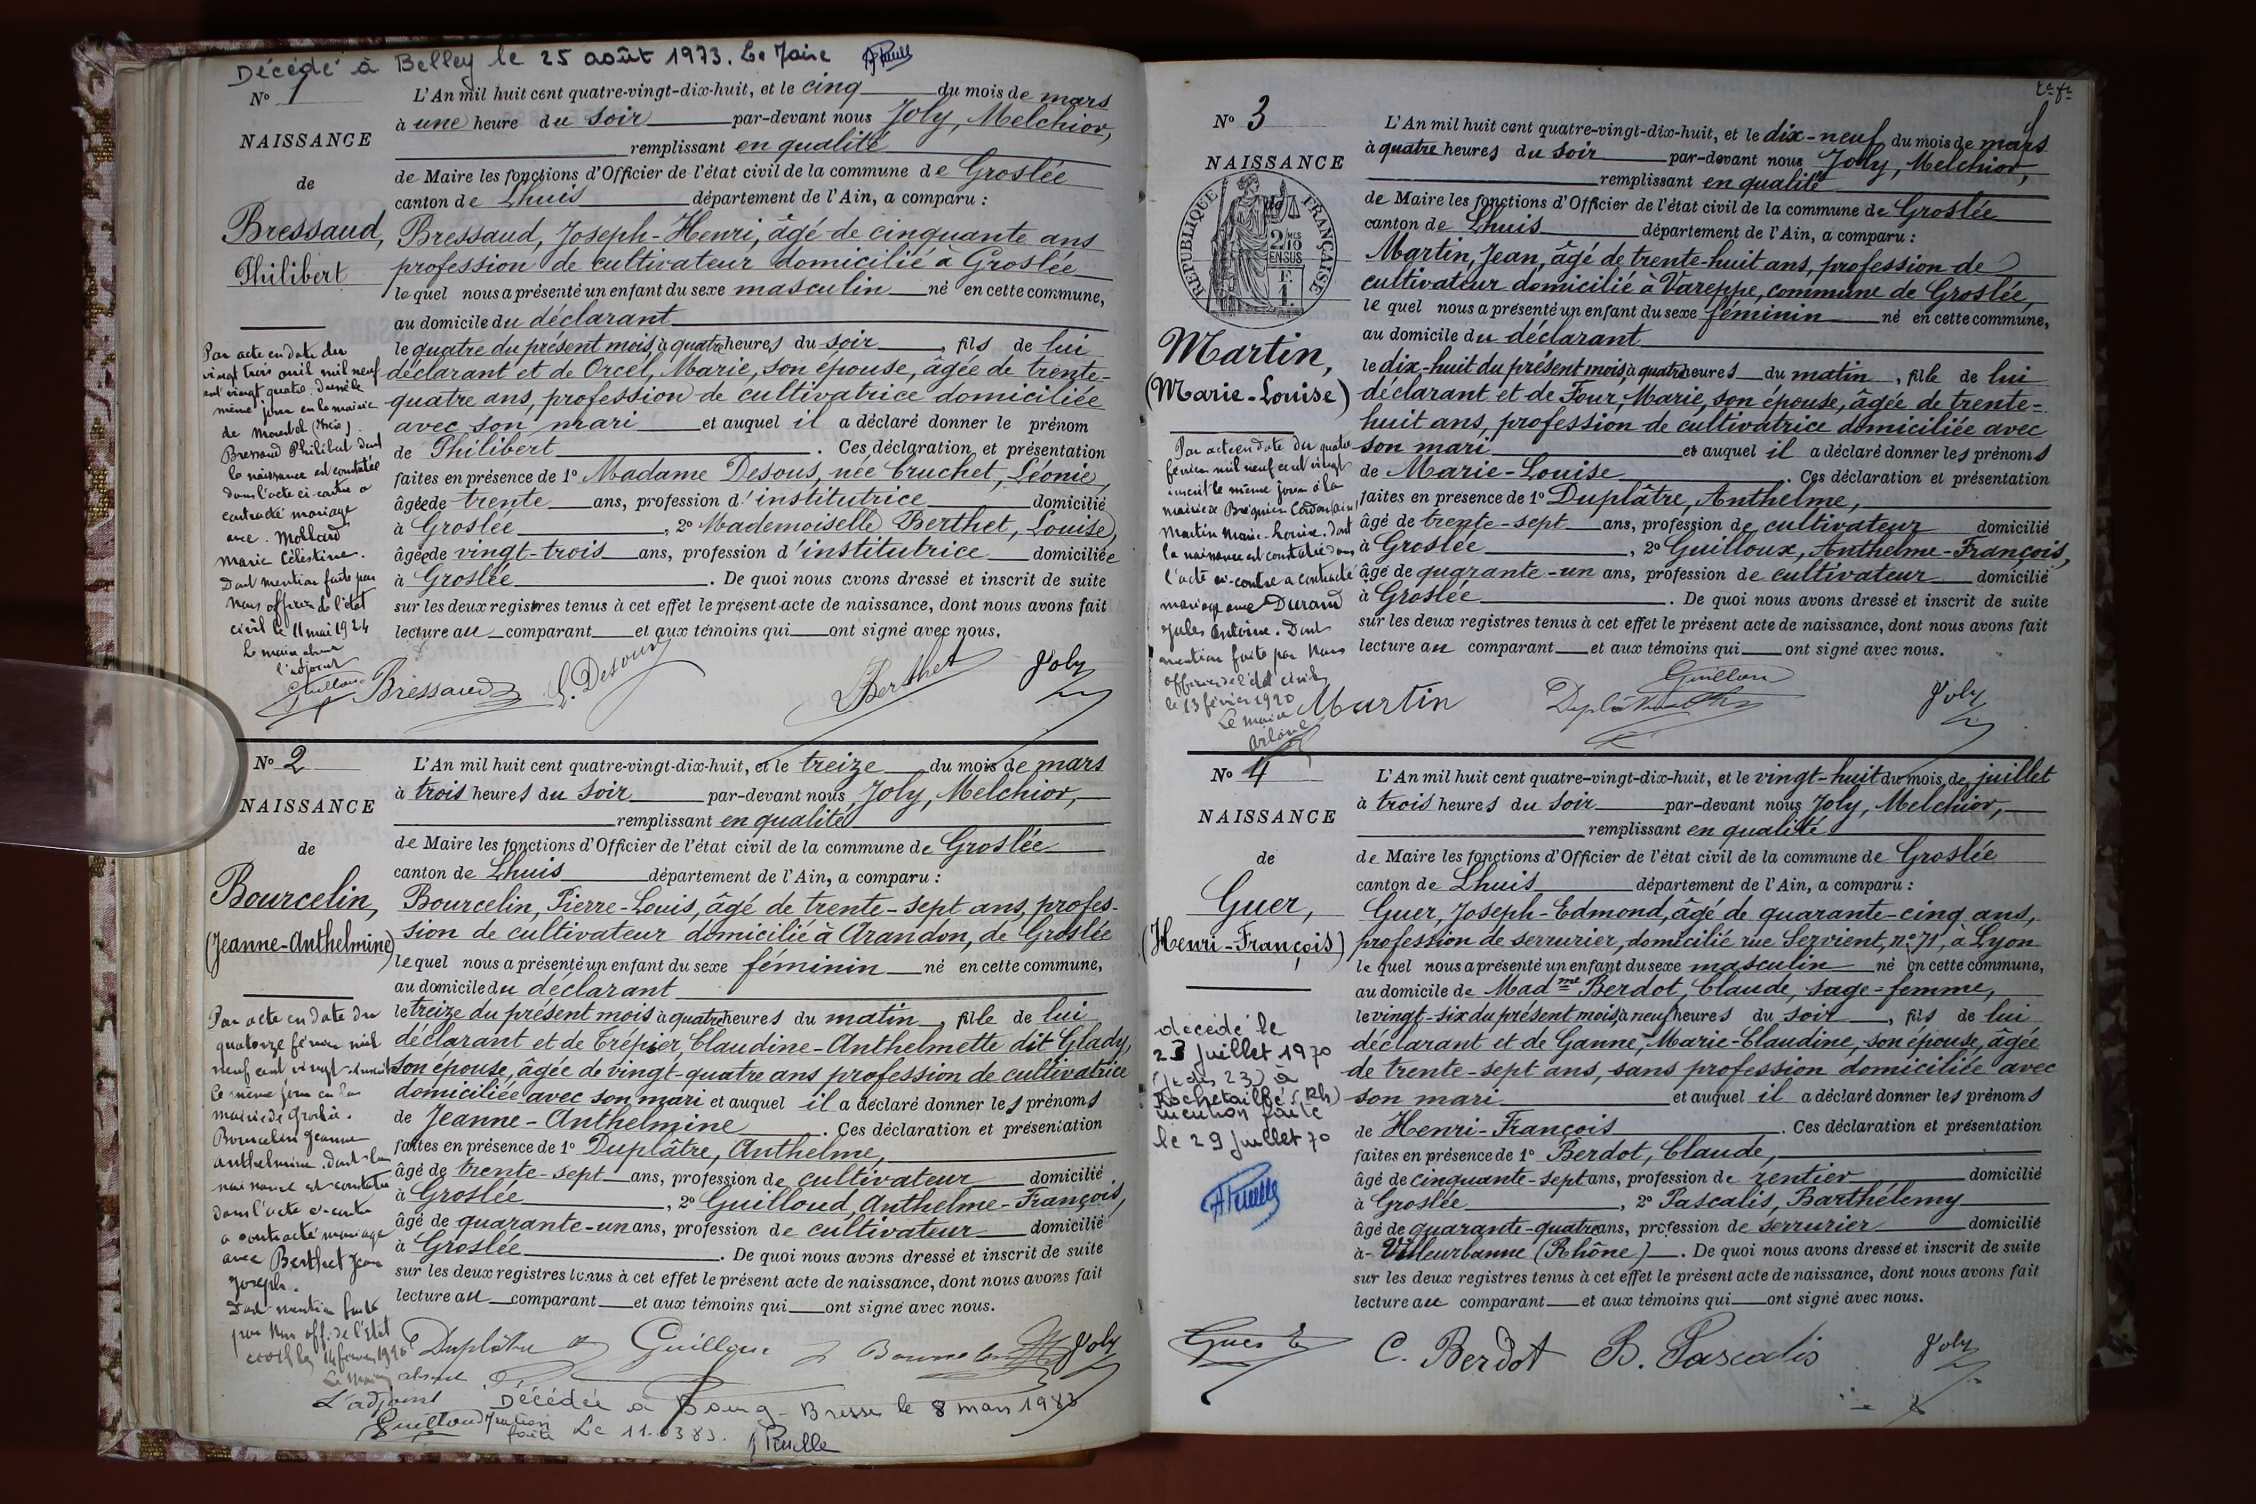 Décédé à Belley le 25 août 1973. Le Maire
N° 1
NAISSANCE
de
Bressaud,
Philibert
L'An mil huit cent quatre-vingt-dix-huit, et le cinq du mois de mars
à une heure du soir par-devant nous Joly, Melchior,
remplissant en qualité
de Maire les fonctions d'Officier de l'état civil de la commune de Groslée
canton de Lhuis département de l'Ain, a comparu :
Bressaud, Joseph-Henri, âgé de cinquante ans
profession de cultivateur domicilié à Groslée
lequel nous a présenté un enfant du sexe masculin né en cette commune,
au domicile du déclarant
le quatre du présent mois, à quatre heures du soir, fils de lui
déclarant et de Orcel, Marie, son épouse, âgée de trente-
quatre ans, profession de cultivatrice domiciliée
avec son mari et auquel il a déclaré donner le prénom
de Philibert. Ces déclaration et présentation
faites en présence de 1° Madame Desous, née Cruchet, Léonie,
âgée de trente ans, profession d'institutrice domicilié
à Groslée, 2° Mademoiselle Berthet, Louise,
âgée de vingt-trois ans, profession d'institutrice domiciliée
à Groslée. De quoi nous avons dressé et inscrit de suite
sur les deux registres tenus à cet effet le présent acte de naissance, dont nous avons fait
lecture au comparant et aux témoins qui ont signé avec nous.
Par acte en date du
vingt trois avril mil neuf
cent vingt quatre
même jour en la mairie
de
Bressaud Philibert dont
la naissance est constatée
dans l'acte ci-contre a
contracté mariage
avec Mollard
Marie Célestine.
Dont mention faite par
Nous officier de l'état
civil le 11 mai 1924
Le maire absent
l'adjoint
Guilloud Bressaud L. Desous Berthet Joly
N° 2
NAISSANCE
de
Bourcelin,
(Jeanne-Anthelmine)
L'An mil huit cent quatre-vingt-dix-huit, et le treize du mois de mars
à trois heures du soir par-devant nous Joly, Melchior,
remplissant en qualité
de Maire les fonctions d'Officier de l'état civil de la commune de Groslée
canton de Lhuis département de l'Ain, a comparu :
Bourcelin, Pierre-Louis, âgé de trente-sept ans, profes-
sion de cultivateur domicilié à Arandon, de Groslée
lequel nous a présenté un enfant du sexe féminin né en cette commune,
au domicile du déclarant
le treize du présent mois à quatre heures du matin, fille de lui
déclarant et de Trépier, Claudine-Anthelmette dit Glady,
son épouse, âgée de vingt-quatre ans profession de cultivatrice
domiciliée avec son mari et auquel il a déclaré donner les prénoms
de Jeanne-Anthelmine. Ces déclaration et présentation
faites en présence de 1° Duplâtre, Anthelme,
âgé de trente-sept ans, profession de cultivateur domicilié
à Groslée, 2° Guilloud, Anthelme-François,
âgé de quarante-un ans, profession de cultivateur domicilié
à Groslée. De quoi nous avons dressé et inscrit de suite
sur les deux registres tenus à cet effet le présent acte de naissance, dont nous avons fait
lecture au comparant et aux témoins qui ont signé avec nous.
Par acte en date du
quatorze février mil
neuf cent vingt inscrit
le même jour en la
mairie de Groslée.
Bourcelin Jeanne
anthelmine. dont la
naissance est constatée
dans l'acte ci-contre
a contracté mariage
avec Berthet Jean
Joseph.
Dont mention faite
par Nous off. de l'Etat
civil le 14 février 1920
Le Maire absent
L'adjoint
Guilloud
Duplâtre Guilloud Joly
Décédée à Bourg-Bresse le 8 mars 1983
Mention faite Le 11.03 83. Ruelle
N° 3
NAISSANCE
de
REPUBLIQUE FRANÇAISE
2/10 EN SUS
Martin,
(Marie-Louise)
L'An mil huit cent quatre-vingt-dix-huit, et le dix-neuf du mois de mars
à quatre heures du soir par-devant nous Joly, Melchior,
remplissant en qualité
de Maire les fonctions d'Officier de l'état civil de la commune de Groslée
canton de Lhuis département de l'Ain, a comparu :
Martin, Jean, âgé de trente-huit ans, profession de
cultivateur domicilié à Vareppe, commune de Groslée,
le quel nous a présenté un enfant du sexe féminin né en cette commune,
au domicile du déclarant
le dix-huit du présent mois, à quatre heures du matin, fille de lui
déclarant et de Four, Marie, son épouse, âgée de trente-
huit ans, profession de cultivatrice domiciliée avec
son mari et auquel il a déclaré donner les prénoms
de Marie-Louise. Ces déclaration et présentation
faites en présence de 1° Duplâtre, Anthelme,
âgé de trente-sept ans, profession de cultivateur domicilié
à Groslée, 2° Guilloux, Anthelme-François,
âgé de quarante-un ans, profession de cultivateur domicilié
à Groslée. De quoi nous avons dressé et inscrit de suite
sur les deux registres tenus à cet effet le présent acte de naissance, dont nous avons fait
lecture au comparant et aux témoins qui ont signé avec nous.
Par acte en date du quatre
février mil neuf cent vingt
inscrit le même jour à la
mairie de Brégnier Cordon (Ain)
Martin Marie-Louise. dont
la naissance est constatée dans
l'acte ci-contre a contracté
mariage avec Durand
Jules Antoine. Dont
mention faite par Nous
officier de l'état civil
le 13 février 1920
Le maire
Martin Guilloud Joly
N° 4
NAISSANCE
de
Guer,
(Henri-François)
L'An mil huit cent quatre-vingt-dix-huit, et le vingt-huit du mois de juillet
à trois heures du soir par-devant nous Joly, Melchior,
remplissant en qualité
de Maire les fonctions d'Officier de l'état civil de la commune de Groslée
canton de Lhuis département de l'Ain, a comparu :
Guer, Joseph-Edmond, âgé de quarante-cinq ans,
profession de serrurier, domicilié rue Servient, n° 71, à Lyon
le quel nous a présenté un enfant du sexe masculin né en cette commune,
au domicile de Madme Berdot, Claude, sage-femme,
le vingt-six du présent mois, à neuf heures du soir, fils de lui
déclarant et de Ganne, Marie-Claudine, son épouse, âgée
de trente-sept ans, sans profession domiciliée avec
son mari et auquel il a déclaré donner les prénoms
de Henri-François. Ces déclaration et présentation
faites en présence de 1° Berdot, Claude,
âgé de cinquante-sept ans, profession de rentier domicilié
à Groslée, 2° Pascalis, Barthélemy
âgé de quarante-quatre ans, profession de serrurier domicilié
à Villeurbanne (Rhône). De quoi nous avons dressé et inscrit de suite
sur les deux registres tenus à cet effet le présent acte de naissance, dont nous avons fait
lecture au comparant et aux témoins qui ont signé avec nous.
décédé le
23 juillet 1970
à
Rochetaillée (Rh)
mention faite
le 29 juillet 70
Guer E C. Berdot B. Pascalis Joly